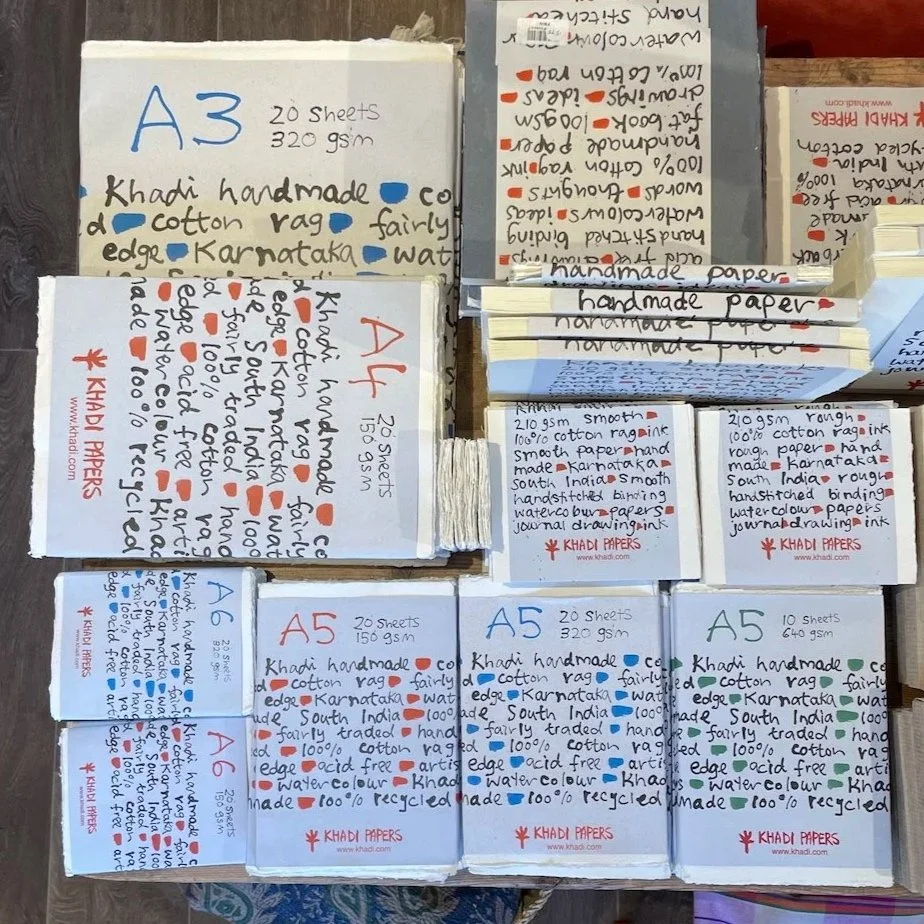 A3
20 sheets
320 gsm
Khadi handmade co
d cotton rag fairly
edge Karnataka wat
A4
20 sheets
150 gsm
Khadi handmade co
d cotton rag fairly
edge Karnataka wat
ade South India 100
fairly traded hand
d 100% cotton rag
edge acid free arti
watercolour Khad
made 100% recycled
KHADI PAPERS
www.khadi.com
acid free drawings
handstitched binding
watercolours ideas
words thoughts
100% cotton rag ink
handmade paper
fat book 100gsm
drawings ideas
100% cotton rag
watercolour
hand stitched
KHADI PAPERS
www.khadi.com
handmade paper
handmade paper
handmade pape
handmade paper
210 gsm smooth
100% cotton rag ink
smooth paper hand
made Karnataka
south India smooth
handstitched binding
watercolour papers
journal drawing ink
KHADI PAPERS
www.khadi.com
210 gsm rough
100% cotton rag ink
rough paper hand
made Karnataka
south India rough
handstitched binding
watercolour papers
journal drawing ink
KHADI PAPERS
www.khadi.com
A6
20 sheets
320 gsm
Khadi handmade c
cotton rag fair
edge Karnataka wa
de South India 100
fairly traded hand
d 100% cotton rag
edge acid free arti
KHADI PAPERS
www.khadi.com
A6
20 sheets
150 gsm
Khadi handmade c
cotton rag fair
edge Karnataka wa
de South India 100
fairly traded han
100% cotton rag
edge acid free art
KHADI PAPERS
www.khadi.com
A5
20 sheets
150 gsm
Khadi handmade co
d cotton rag fairly
edge Karnataka wat
ade South India 100
fairly traded hand
ed 100% cotton rag
edge acid free artis
watercolour Khad
made 100% recycled
KHADI PAPERS
www.khadi.com
A5
20 sheets
320 gsm
Khadi handmade co
d cotton rag fairly
edge Karnataka wat
ade South India 100
fairly traded hand
ed 100% cotton rag
edge acid free artis
watercolour Khad
made 100% recycled
KHADI PAPERS
www.khadi.com
A5
10 sheets
640 gsm
Khadi handmade co
d cotton rag fairly
edge Karnataka wat
ade South India 100
fairly traded hand
ed 100% cotton rag
edge acid free artis
watercolour Khad
made 100% recycled
KHADI PAPERS
www.khadi.com